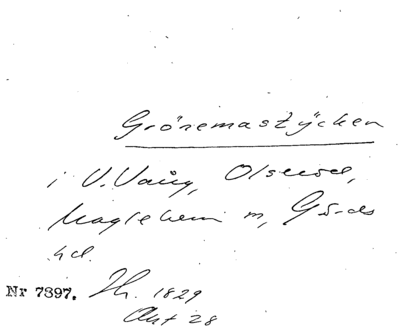 Grönemastÿcken
i V. Vång, Olseröd,
Maglehem sn, Gärds
hd.
Nr 7397. Jh. 1829
Akt 28